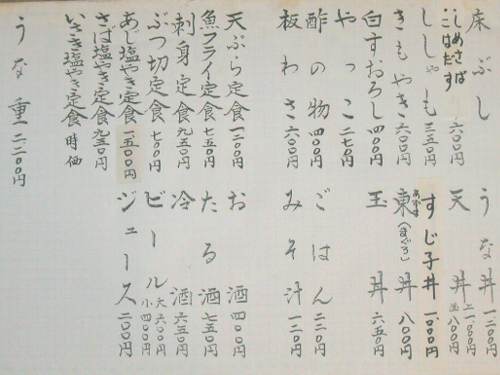 床ぶし 六〇〇円
しめさば
こはだす
ししゃも 三五〇円
きもやき 六〇〇円
白すおろし 四〇〇円
やっこ 二七〇円
酢の物 四〇〇円
板わさ 六〇〇円
天ぷら定食 一二〇〇円
魚フライ定食 七五〇円
刺身定食 九五〇円
ぶつ切定食 七〇〇円
あじ塩やき定食 一五〇〇円
さば塩やき定食 九五〇円
いさき塩やき定食 時価
うな重 二二〇〇円
うな丼 一二〇〇円
天丼 上一、〇〇〇円 並八〇〇円
すじ子丼 一、〇〇〇円
東丼 (まぐろ) 八〇〇円
玉丼 六五〇円
ごはん 二二〇円
みそ汁 一二〇円
お酒 四〇〇円
たる酒 七五〇円
冷酒 六五〇円
ビール 大六〇〇円 小四〇〇円
ジュース 二〇〇円